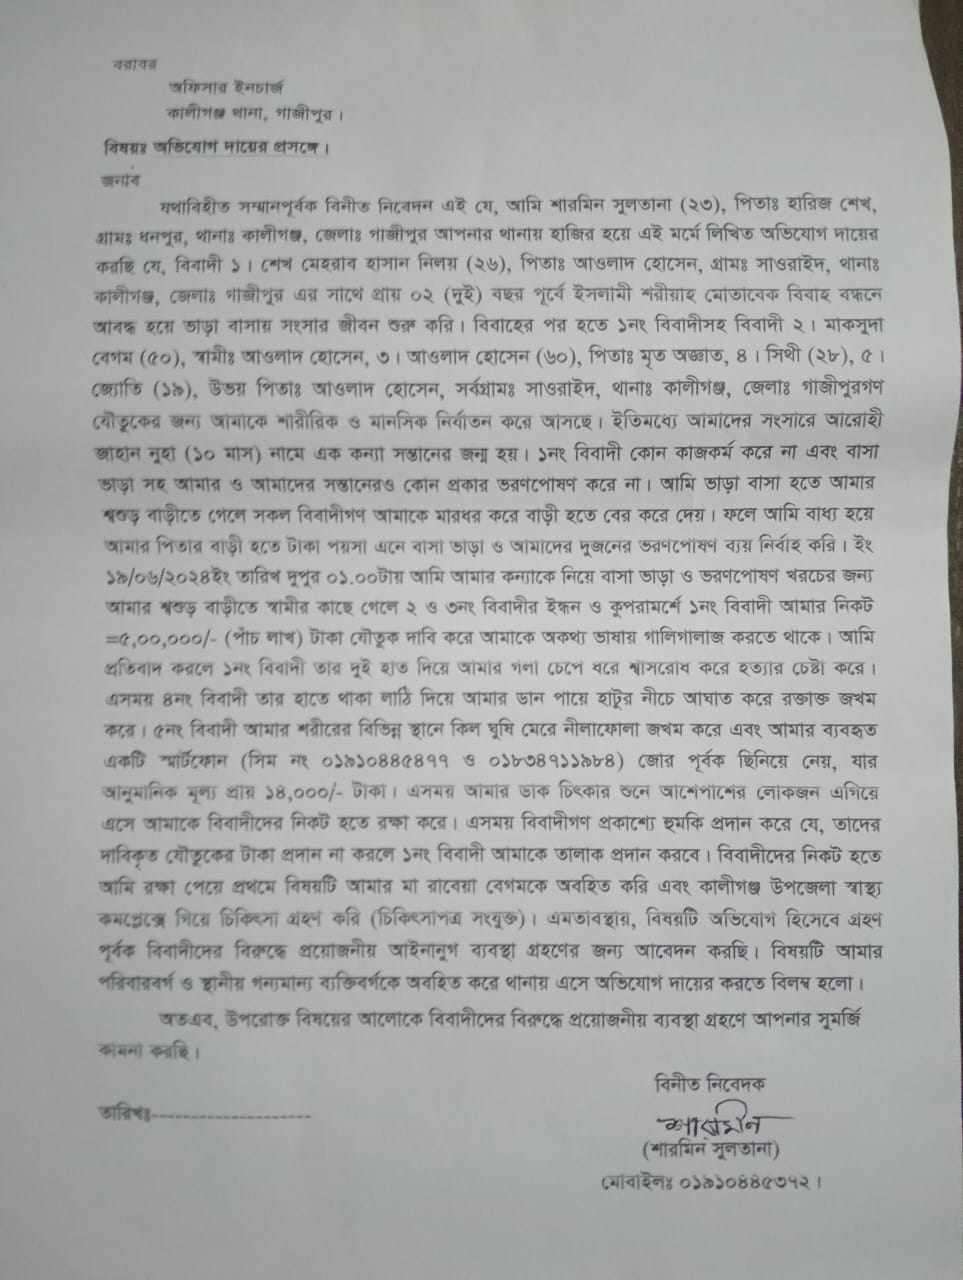 বরাবর
অফিসার ইনচার্জ
কালীগঞ্জ থানা, গাজীপুর।
বিষয়ঃ অভিযোগ দায়ের প্রসঙ্গে।
জনাব
যথাবিহীত সম্মানপূর্বক বিনীত নিবেদন এই যে, আমি শারমিন সুলতানা (২৩), পিতাঃ হারিজ শেখ,
গ্রামঃ ধনপুর, থানাঃ কালীগঞ্জ, জেলাঃ গাজীপুর আপনার থানায় হাজির হয়ে এই মর্মে লিখিত অভিযোগ দায়ের
করছি যে, বিবাদী ১। শেখ মেহরাব হাসান নিলয় (২৬), পিতাঃ আওলাদ হোসেন, গ্রামঃ সাওরাইদ, থানাঃ
কালীগঞ্জ, জেলাঃ গাজীপুর এর সাথে প্রায় ০২ (দুই) বছর পূর্বে ইসলামী শরীয়াহ মোতাবেক বিবাহ বন্ধনে
আবদ্ধ হয়ে ভাড়া বাসায় সংসার জীবন শুরু করি। বিবাহের পর হতে ১নং বিবাদীসহ বিবাদী ২। মাকসুদা
বেগম (৫০), স্বামীঃ আওলাদ হোসেন, ৩। আওলাদ হোসেন (৬০), পিতাঃ মৃত অজ্ঞাত, ৪। সিথী (২৮), ৫।
জ্যোতি (১৯), উভয় পিতাঃ আওলাদ হোসেন, সর্বগ্রামঃ সাওরাইদ, থানাঃ কালীগঞ্জ, জেলাঃ গাজীপুরগণ
যৌতুকের জন্য আমাকে শারীরিক ও মানসিক নির্যাতন করে আসছে। ইতিমধ্যে আমাদের সংসারে আরোহী
জাহান নুহা (১০ মাস) নামে এক কন্যা সন্তানের জন্ম হয়। ১নং বিবাদী কোন কাজকর্ম করে না এবং বাসা
ভাড়া সহ আমার ও আমাদের সন্তানেরও কোন প্রকার ভরণপোষণ করে না। আমি ভাড়া বাসা হতে আমার
শ্বশুড় বাড়ীতে গেলে সকল বিবাদীগণ আমাকে মারধর করে বাড়ী হতে বের করে দেয়। ফলে আমি বাধ্য হয়ে
আমার পিতার বাড়ী হতে টাকা পয়সা এনে বাসা ভাড়া ও আমাদের দুজনের ভরণপোষণ ব্যয় নির্বাহ করি। ইং
১৯/০৬/২০২৪ইং তারিখ দুপুর ০১.০০টায় আমি আমার কন্যাকে নিয়ে বাসা ভাড়া ও ভরণপোষণ খরচের জন্য
আমার শ্বশুড় বাড়ীতে স্বামীর কাছে গেলে ২ ও ৩নং বিবাদীর ইন্ধন ও কুপরামর্শে ১নং বিবাদী আমার নিকট
=৫,০০,০০০/- (পাঁচ লাখ) টাকা যৌতুক দাবি করে আমাকে অকথ্য ভাষায় গালিগালাজ করতে থাকে। আমি
প্রতিবাদ করলে ১নং বিবাদী তার দুই হাত দিয়ে আমার গলা চেপে ধরে শ্বাসরোধ করে হত্যার চেষ্টা করে।
এসময় ৪নং বিবাদী তার হাতে থাকা লাঠি দিয়ে আমার ডান পায়ে হাটুর নীচে আঘাত করে রক্তাক্ত জখম
করে। ৫নং বিবাদী আমার শরীরের বিভিন্ন স্থানে কিল ঘুষি মেরে নীলাফোলা জখম করে এবং আমার ব্যবহৃত
একটি স্মার্টফোন (সিম নং ০১৯১০৪৪৫৪৭৭ ও ০১৮৩৪৭১১৯৮৪) জোর পূর্বক ছিনিয়ে নেয়, যার
আনুমানিক মূল্য প্রায় ১৪,০০০/- টাকা। এসময় আমার ডাক চিৎকার শুনে আশেপাশের লোকজন এগিয়ে
এসে আমাকে বিবাদীদের নিকট হতে রক্ষা করে। এসময় বিবাদীগণ প্রকাশ্যে হুমকি প্রদান করে যে, তাদের
দাবিকৃত যৌতুকের টাকা প্রদান না করলে ১নং বিবাদী আমাকে তালাক প্রদান করবে। বিবাদীদের নিকট হতে
আমি রক্ষা পেয়ে প্রথমে বিষয়টি আমার মা রাবেয়া বেগমকে অবহিত করি এবং কালীগঞ্জ উপজেলা স্বাস্থ্য
কমপ্লেক্সে গিয়ে চিকিৎসা গ্রহণ করি (চিকিৎসাপত্র সংযুক্ত)। এমতাবস্থায়, বিষয়টি অভিযোগ হিসেবে গ্রহণ
পূর্বক বিবাদীদের বিরুদ্ধে প্রয়োজনীয় আইনানুগ ব্যবস্থা গ্রহণের জন্য আবেদন করছি। বিষয়টি আমার
পরিবারবর্গ ও স্থানীয় গন্যমান্য ব্যক্তিবর্গকে অবহিত করে থানায় এসে অভিযোগ দায়ের করতে বিলম্ব হলো।
অতএব, উপরোক্ত বিষয়ের আলোকে বিবাদীদের বিরুদ্ধে প্রয়োজনীয় ব্যবস্থা গ্রহণে আপনার সুমর্জি
কামনা করছি।
বিনীত নিবেদক
তারিখঃ--------------------
শারমিন
(শারমিন সুলতানা)
মোবাইলঃ ০১৯১০৪৪৫৩৭২।